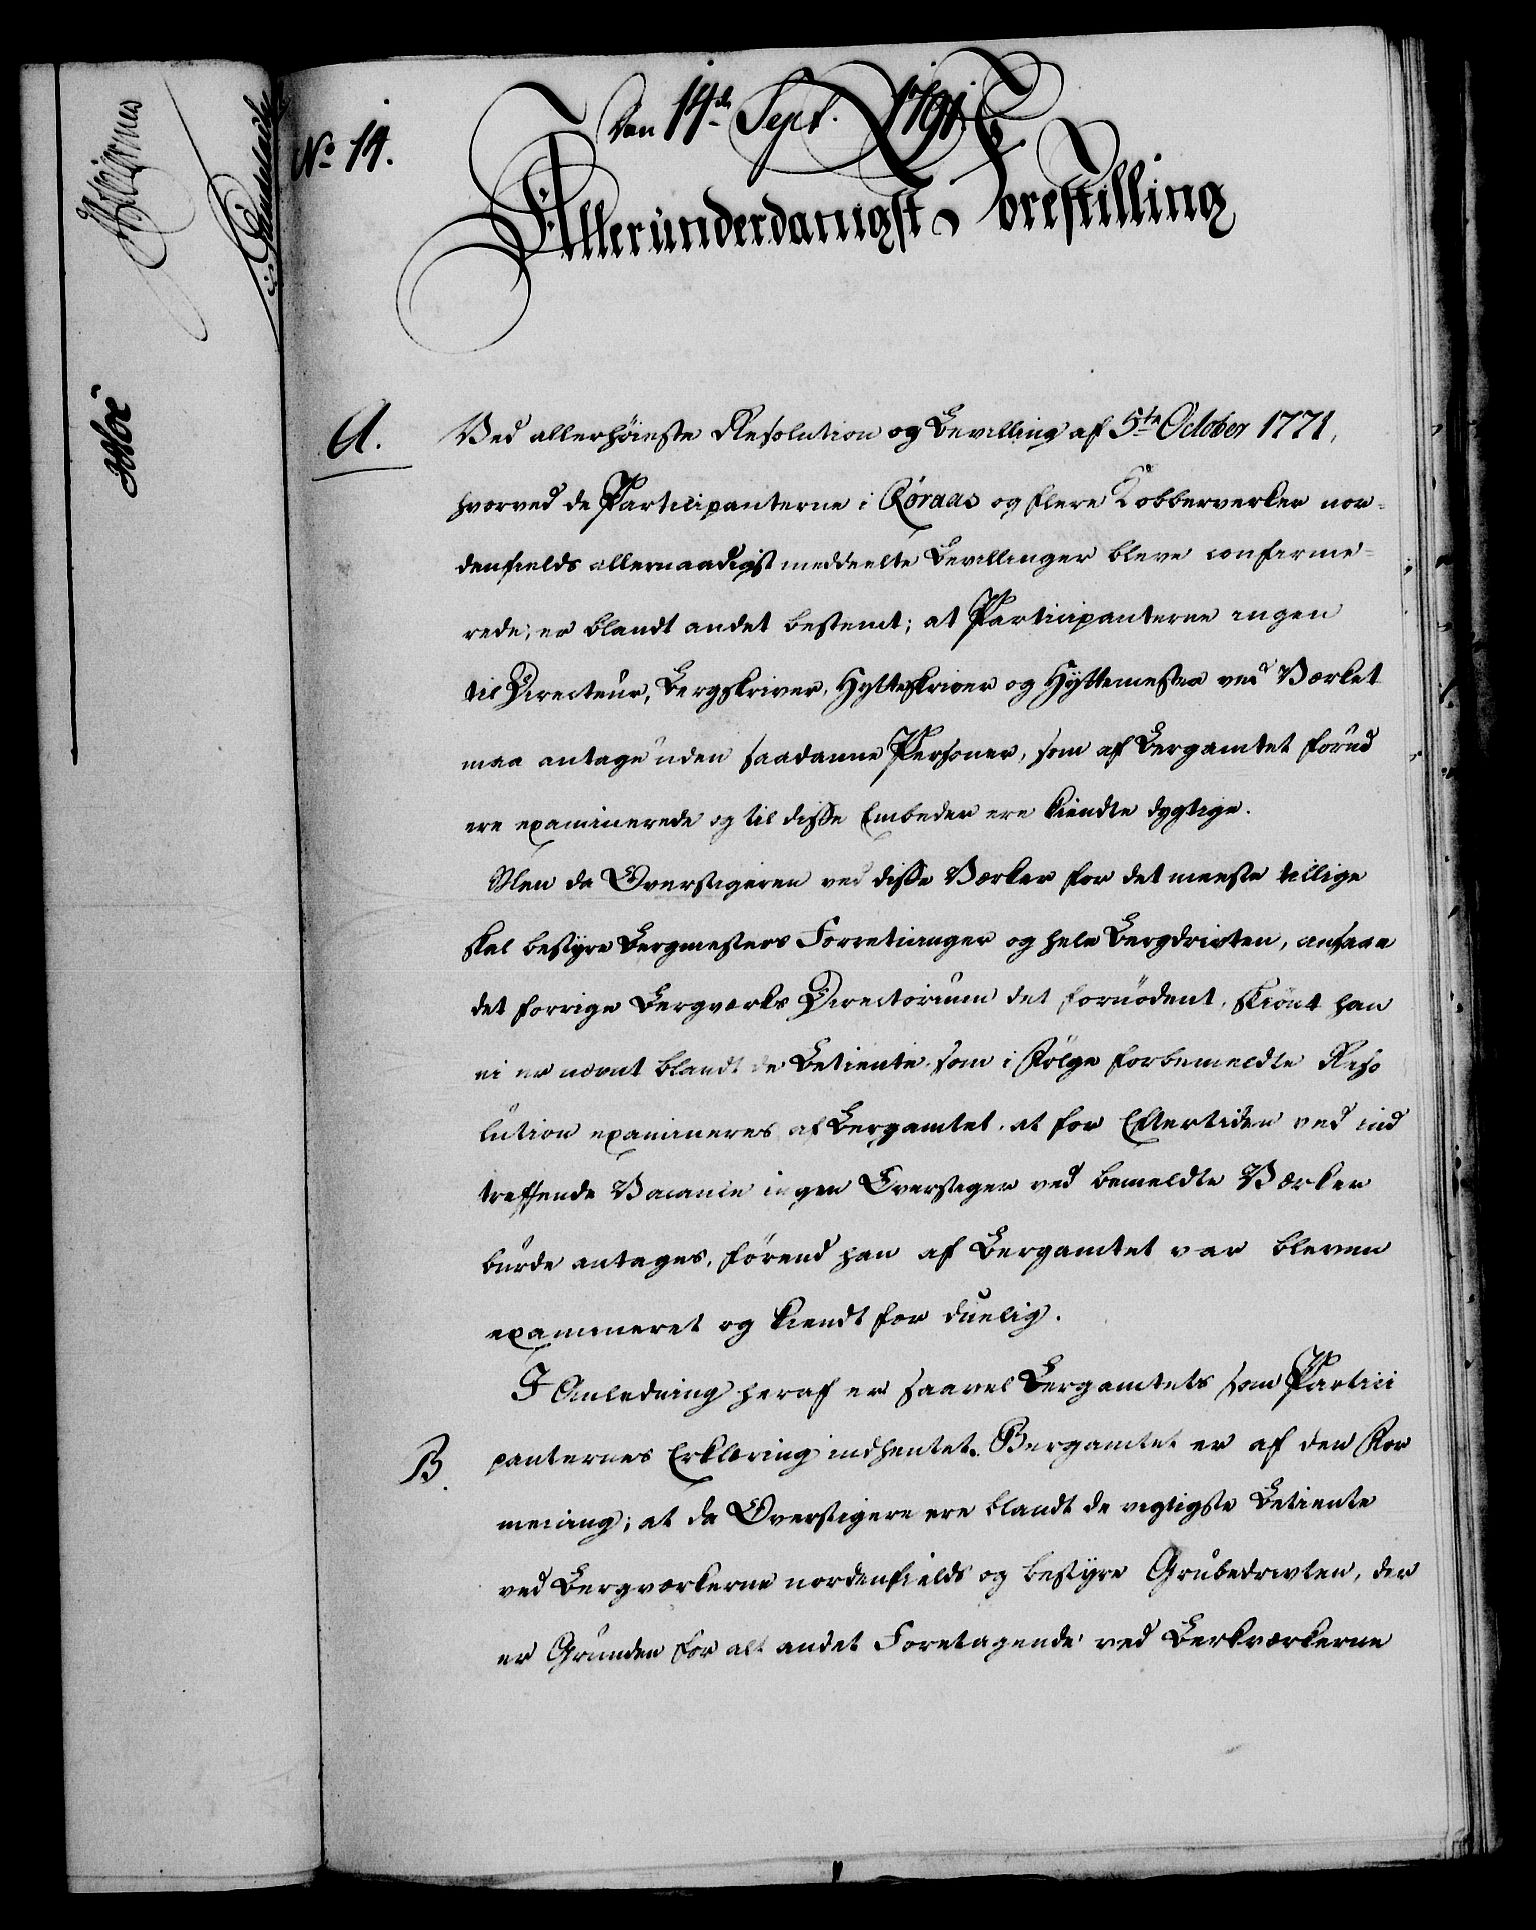 No 14.
Den 14de Sept. 1791.
Allerunderdanigst Forestilling
A.
Ved allerhöieste Resolution og Bevilling af 5te October 1771,
hvorved de Participanterne i Röraas og flere Kobberverker nor-
denfields allernaadigst meddeelte Bevillinger bleve confirme-
rede; er blandt andet bestemt; at Participanterne ingen
til Directeur, Bergskriver, Hytteskriver og Hyttemester ved Værket
maa antage uden saadanne Personer, som af Bergamtet forud
ere examinerede og til disse Embeder ere kiendte dygtige.
Men da Overstigeren ved disse Værker for det meeste tillige
skal bestyre Bergmesters Forretninger og hele Bergdriften, ansaae
det forrige Bergværks Directorium det fornödent, skiönt han
ei er nævnt blandt de Betiente, som i Fölge forbemeldte Reso
lution examineres af Bergamtet, at for Eftertiden ved ind
treffende Vacance ingen Overstiger ved bemeldte Værker
burde antages, förend han af Bergamtet var bleven
examineret og kiendt for duelig.
I Anledning heraf er saavel Bergamtets som Partici
B.
panternes Erklæring indhentet. Bergamtet er af den For
mening; at da Overstigere ere blandt de vigtigste Betiente
ved Bergværkerne nordenfields og bestyre Grubedrivten, der
er Grunden for alt andet Foretagende ved Berkværkerne